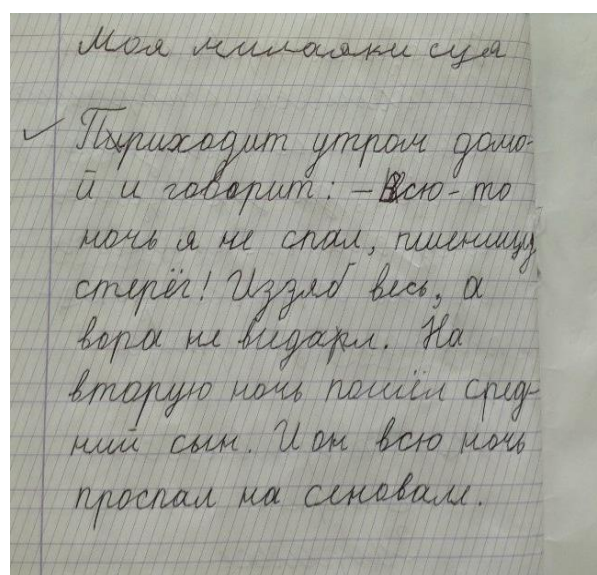 Моя милаяки суя
Пыриходит утром домо-
й и говорит: - Всю-то
ночь я не спал, пшеницу
стерёг! Иззяб весь, а
вора не видарл. На
вторую ночь пошёл сред-
ний сын. И он всю ночь
проспал на сеновале.